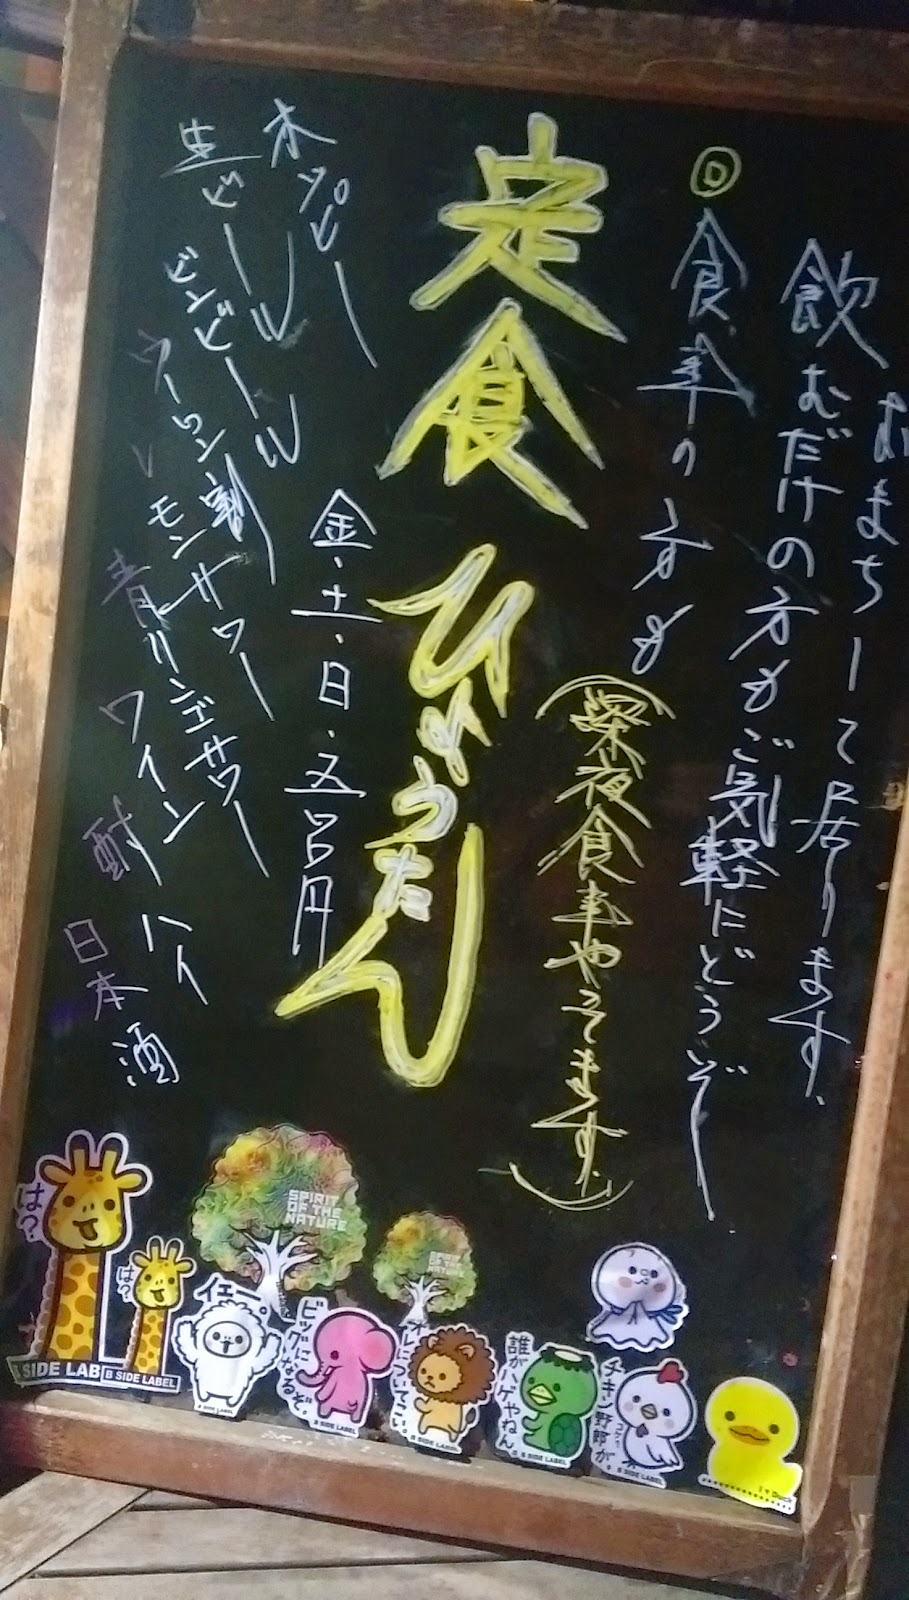 おまちして居ります。
飲むだけの方もご気軽にどうぞー
食事の方も
(深夜食事やってます。)
定食 ひょうたん
金・土・日・五百円
ホッピー
生ビール
ビンビール
ウーロン割
レモンサワー
青リンゴサワー
ワイン
酎ハイ
日本酒
は?
B SIDE LABEL
は?
B SIDE LABEL
SPIRIT
OF THE
NATURE
SPIRIT
OF THE
NATURE
イエー。
B SIDE LABEL
ビッグになるぞ。
B SIDE LABEL
オレについてこい。
B SIDE LABEL
誰がハゲやねん。
B SIDE LABEL
チキン野郎が。
B SIDE LABEL
I ♥ Duck